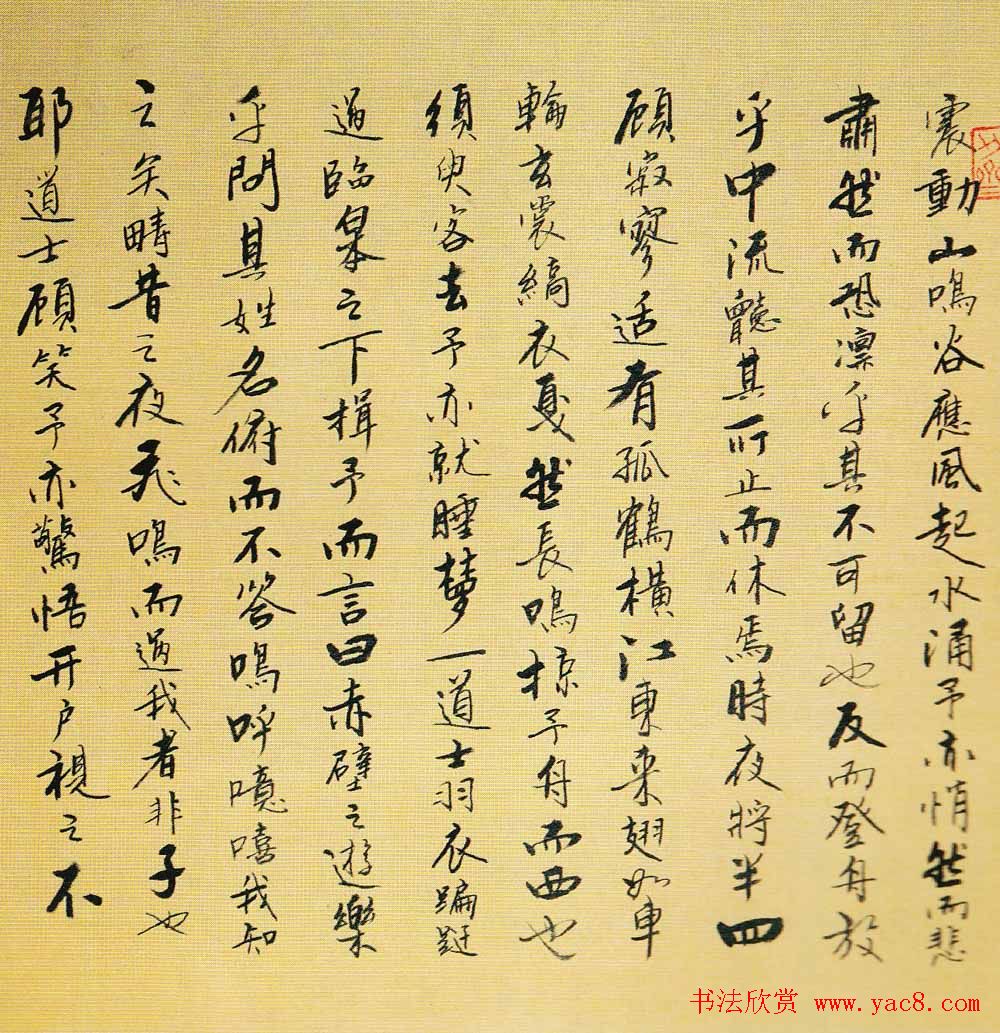 震動山鳴谷應風起水涌予亦悄然而悲
肅然而恐凛乎其不可留也反而登舟放
乎中流聽其所止而休焉時夜將半四
顧寂寥适有孤鶴橫江東來翅如車
輪玄裳縞衣戛然長鳴掠予舟而西也
須臾客去予亦就睡夢一道士羽衣蹁躚
過臨皋之下揖予而言曰赤壁之遊樂
乎問其姓名俯而不答嗚呼噫嘻我知
之矣疇昔之夜飛鳴而過我者非子也
耶道士顧笑予亦驚悟開户視之不
书法欣赏 www.yac8.com